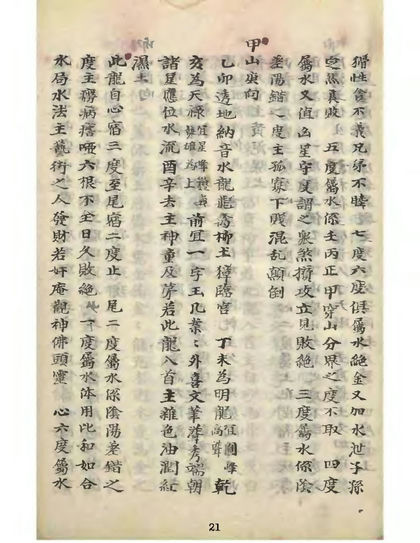 猾性貪不義兄弟不睦 七度六度俱屬水絕金又加水泄子孫
五度屬水係壬丙正甲穿山分界之度不取 四度
屬水又值凶星守度謂之衆煞攢攻立見敗絕 三度屬水係陰
差陽錯 一度主孤寡下賤混亂顛倒
甲山庚向
乙卯透地納音水龍 丁未為明龍 乾
亥為天祿 前宜一字玉几案 外喜文筆峰秀端朝
諸星應位水流酉辛去主神童及第若此龍入首主雜色油潤紅
濕土
此龍自心宿三度至尾宿二度止 尾二度屬水係陰陽差錯之
度主癆病瘖啞六根不全日久敗絕 一度屬水体用比和如合
水局水法主藝術之人發財若奸庵觀神佛頭靈 心六度屬水
21